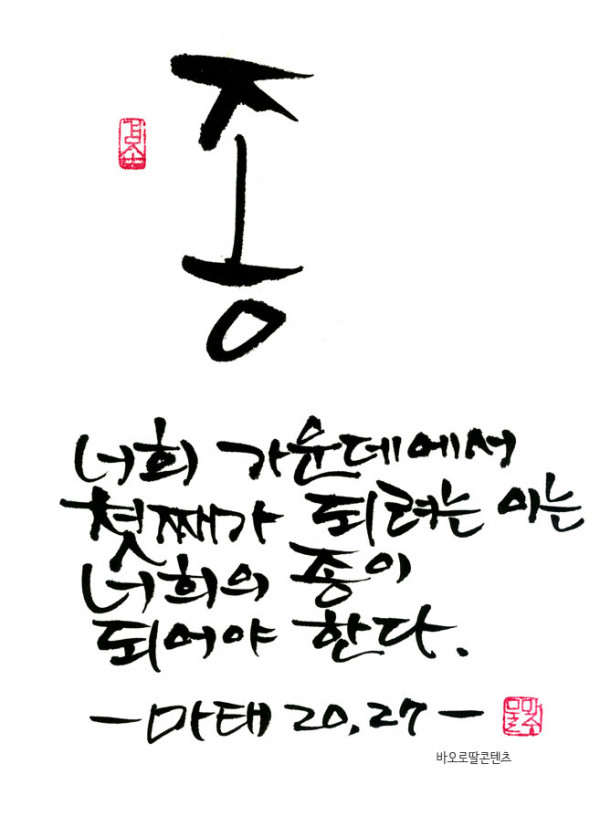 종
너희 가운데에서
첫째가 되려는 이는
너희의 종이
되어야 한다.
-마태 20,27-
바오로딸콘텐츠